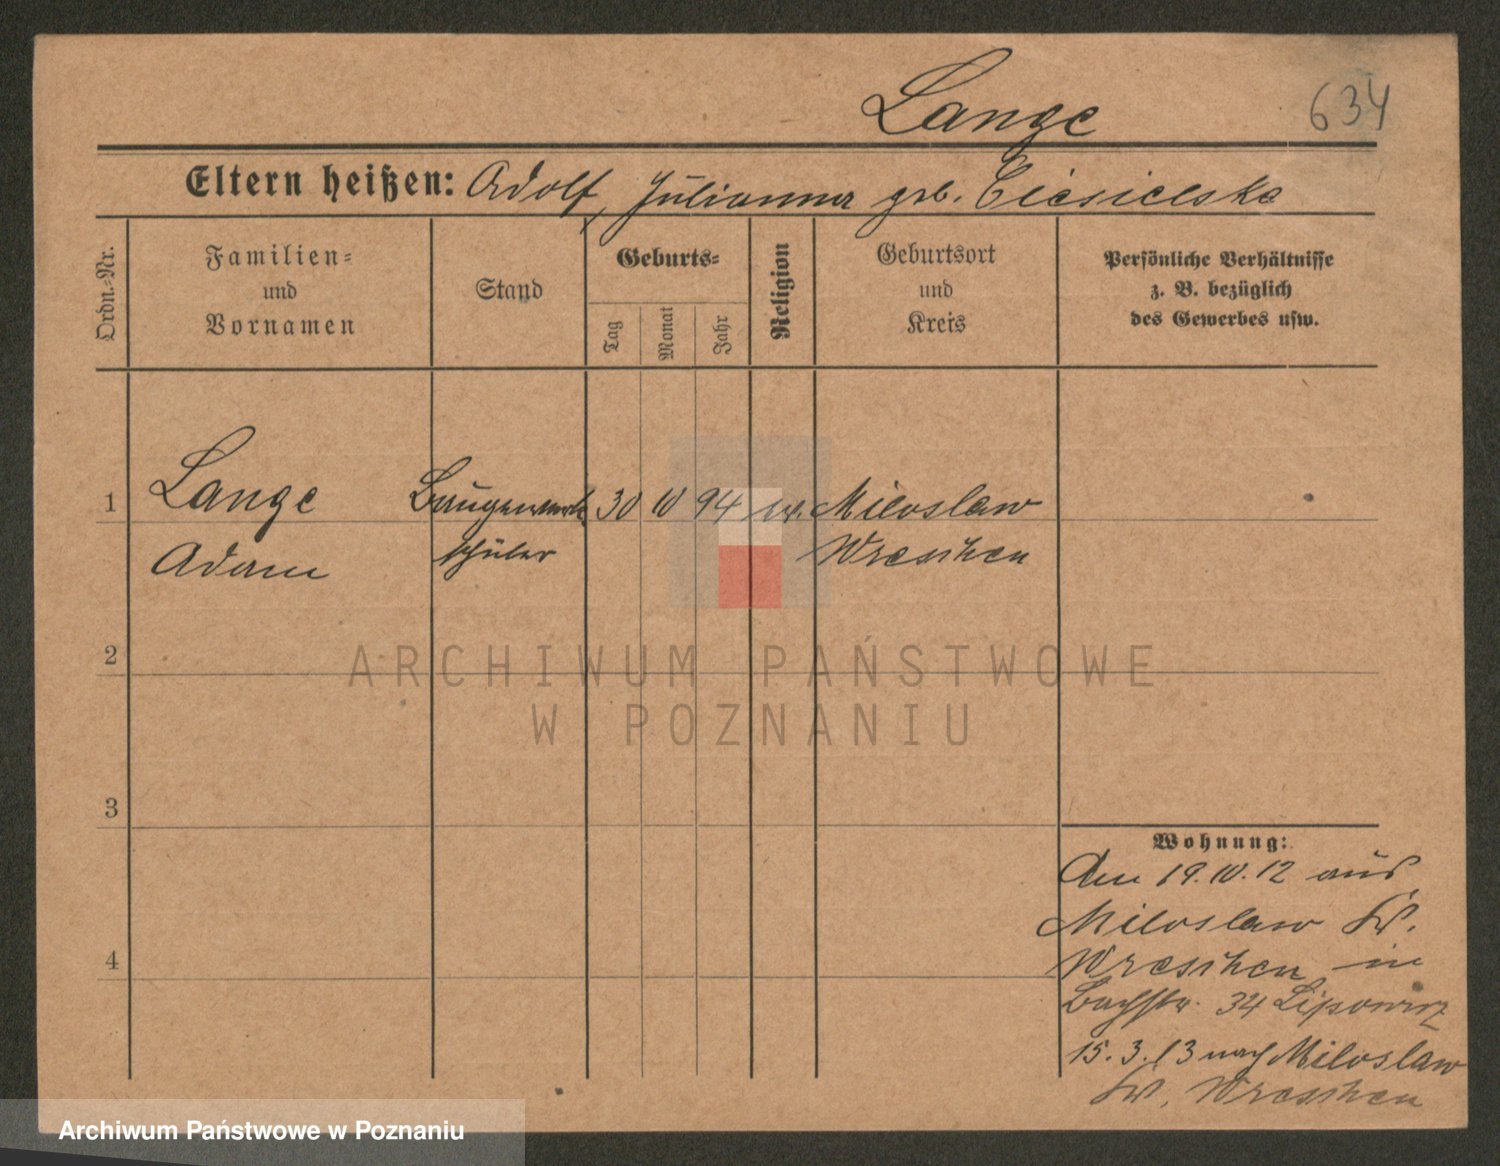 Lange 634
Eltern heißen: Adolf, Julianna geb. Ciesielska
Ordn.-Nr.
Familien-
und
Vornamen
Stand
Geburts-
Tag Monat Jahr
Religion
Geburtsort
und
Kreis
Persönliche Verhältnisse
z. B. bezüglich
des Gewerbes usw.
1 Lange Baugewerk 30 10 94 Miloslaw
Adam schüler Wreschen
2
ARCHIWUM PAŃSTWOWE
W POZNANIU
3
Wohnung:
Am 19.10.12 aus
Miloslaw Kr.
4
Wreschen in
Bachstr. 34 Lipowicz
15.3.13 nach Miloslaw
Kr. Wreschen
Archiwum Państwowe w Poznaniu